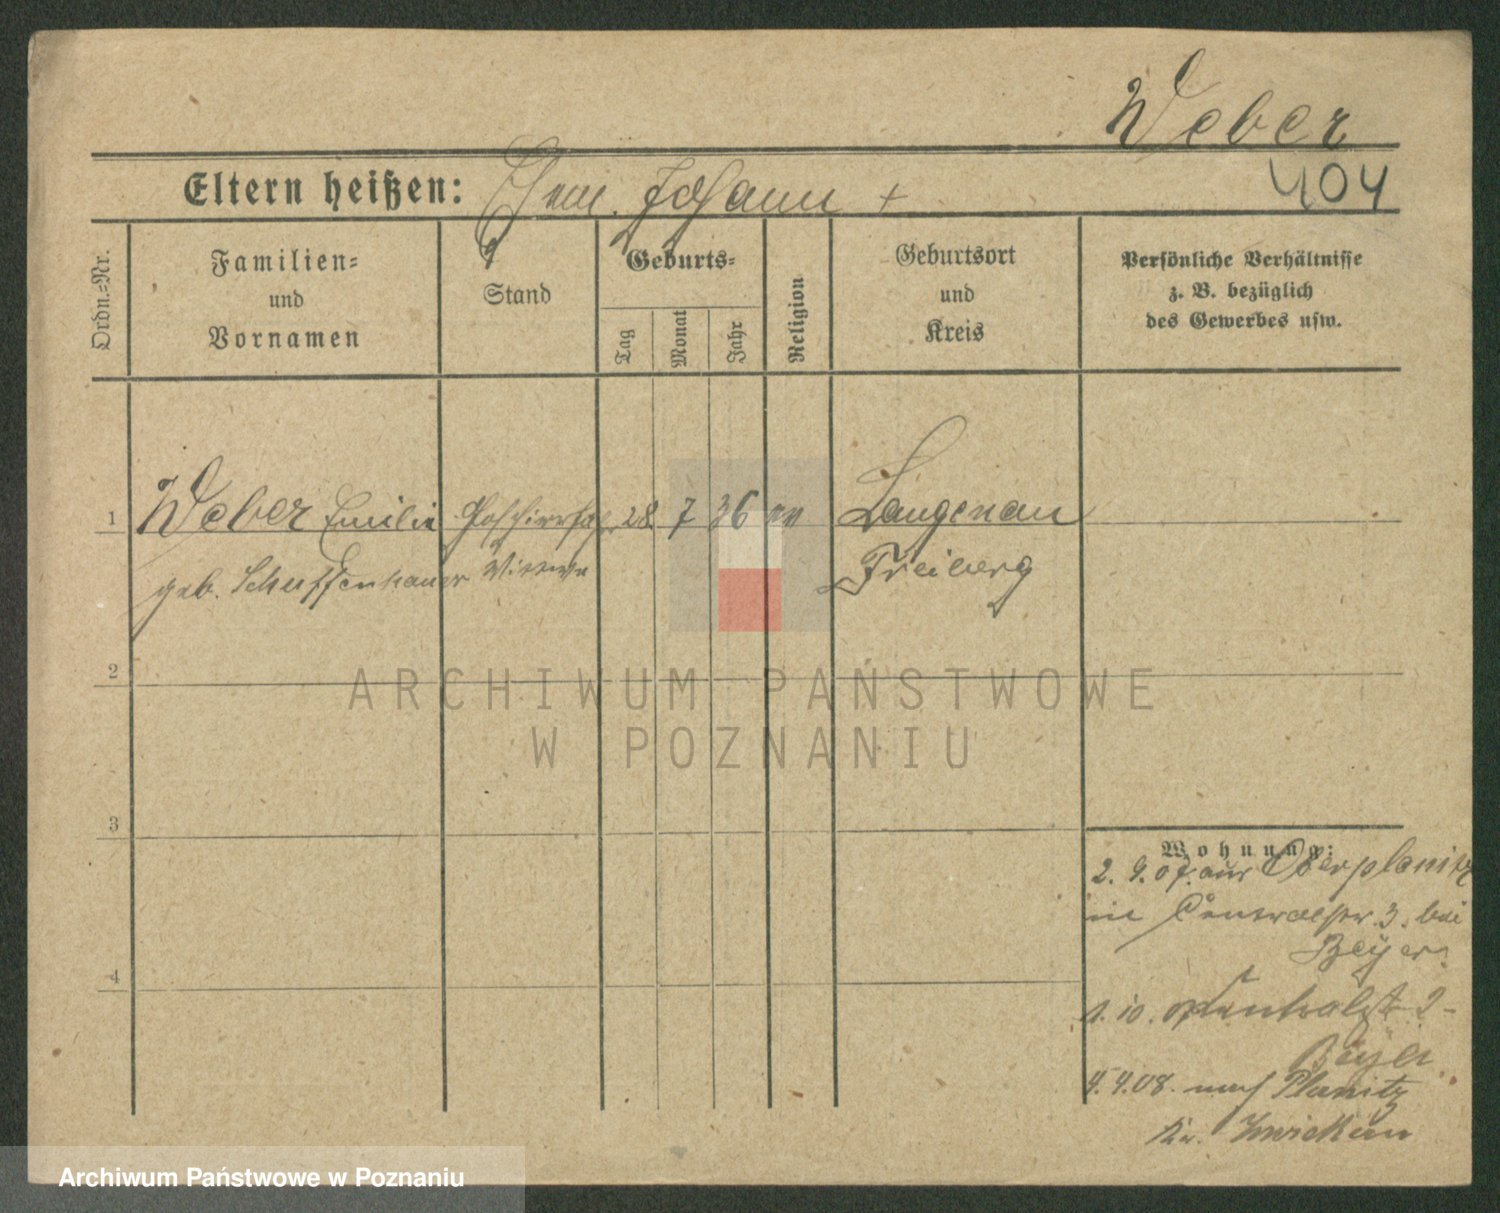 Weber
404
Eltern heißen: Johann +
Ordn.-Nr.
Familien-
und
Vornamen
Stand
Geburts-
Tag
Monat
Jahr
Religion
Geburtsort
und
Kreis
Persönliche Verhältnisse
z. B. bezüglich
des Gewerbes usw.
1
Weber Emilie
geb. Schuffenhauer
Witwe
28. 7 36 ev
Langenau
Freiberg
2
3
4
Wohnung:
2. 9. 07. aus Oberplanitz
in Centralstr. 3. bei
Beyer.
1. 10. Zentralstr. 2
Beyer
4. 4. 08. nach Planitz
Kr. Zwickau
ARCHIWUM PAŃSTWOWE
W POZNANIU
Archiwum Państwowe w Poznaniu